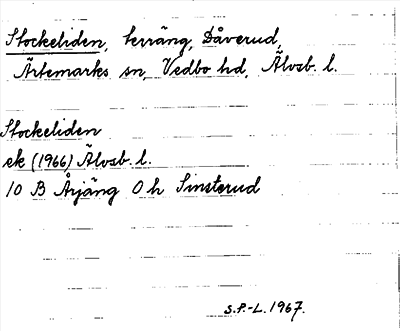 Stockeliden, terräng, Dåverud,
Ärtemarks sn, Vedbo hd, Älvsb. l.
Stockeliden
ek (1966) Älvsb. l.
10 B Årjäng 0 h Sinsterud
S.F.-L. 1967.